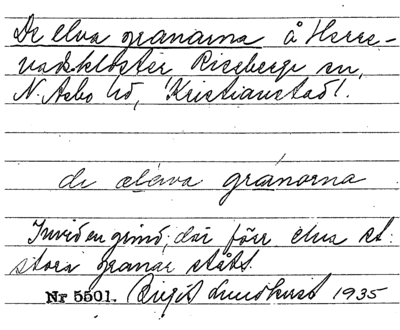 De elva granarna å Herre-
vadskloster Riseberga sn,
N. Åsbo hd, Kristianstad l.
de elava gránorna
Invid en grind, där förr elva st.
stora granar stått.
Nr 5501. Birgit Lundkvist 1935